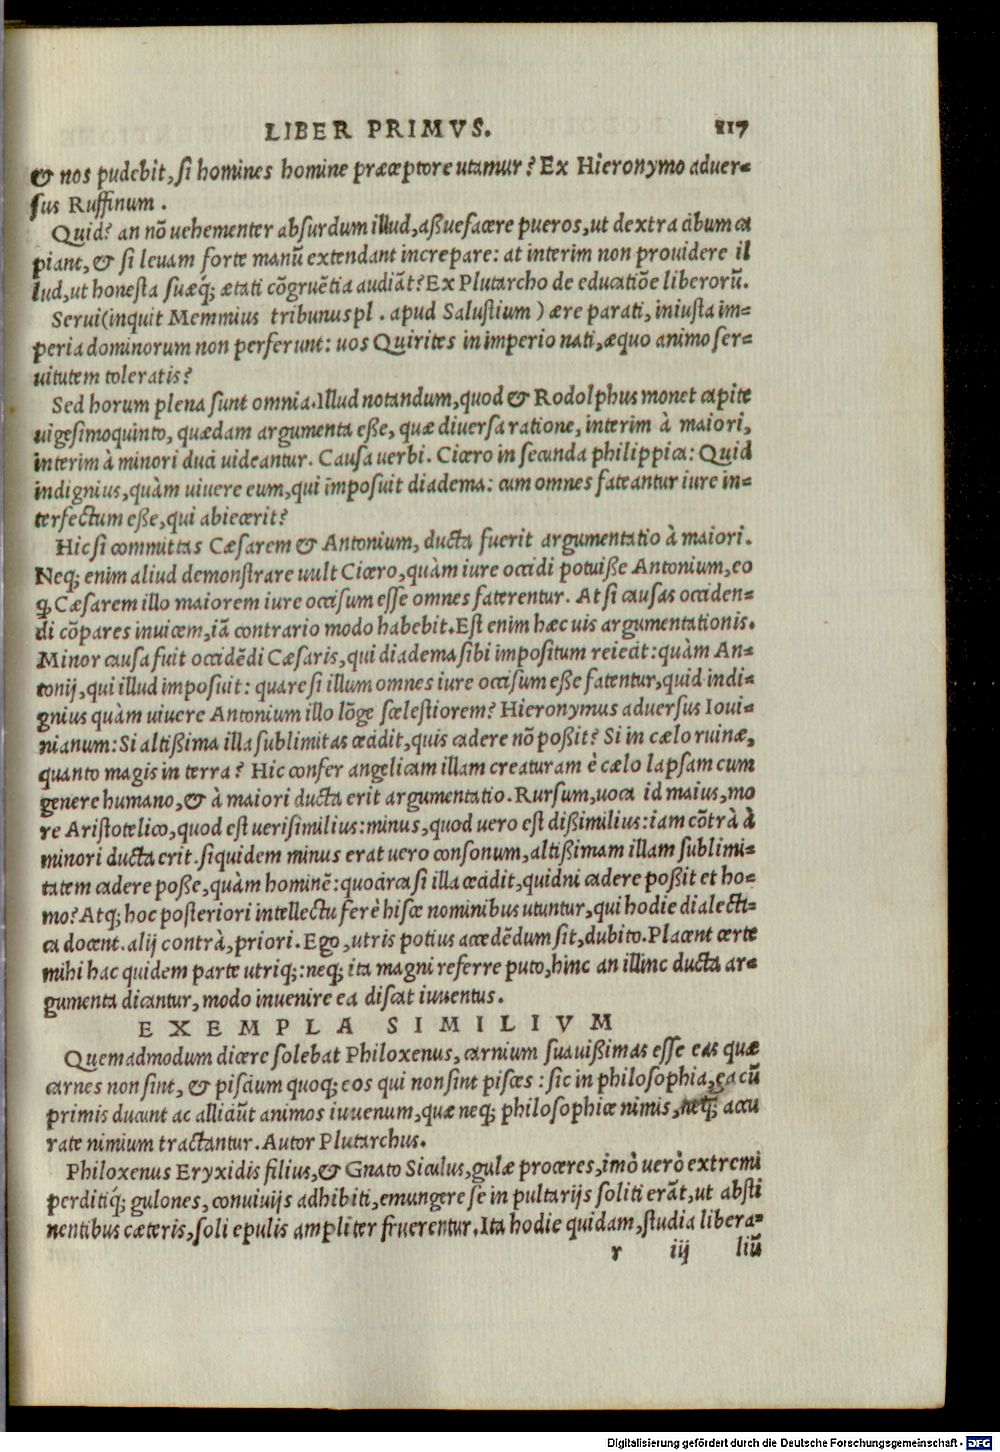 LIBER PRIMVS. 117
& nos pudebit, ſi homines homine præceptore utamur? Ex Hieronymo aduer=
ſus Ruffinum.
Quid? an nõ uehementer abſurdum illud, aßuefacere pueros, ut dextra cibum ca
piant, & ſi leuam forte manũ extendant increpare: at interim non prouidere il
lud, ut honeſta ſuæq́; ætati cõgruẽtia audiãt? Ex Plutarcho de educatiõe liberorũ.
Serui (inquit Memmius tribunus pl. apud Saluſtium) ære parati, iniuſta im=
peria dominorum non perferunt: uos Quirites in imperio nati, æquo animo ſer=
uitutem toleratis?
Sed horum plena ſunt omnia. Illud notandum, quod & Rodolphus monet capite
uigeſimoquinto, quædam argumenta eße, quæ diuerſa ratione, interim à maiori,
interim à minori duci uideantur. Cauſa uerbi. Cicero in ſecunda philippica: Quid
indignius, quàm uiuere eum, qui impoſuit diadema: cum omnes fateantur iure in=
terfectum eße, qui abiecerit?
Hic ſi committas Cæſarem & Antonium, ducta fuerit argumentatio à maiori.
Neq; enim aliud demonſtrare uult Cicero, quàm iure occidi potuiße Antonium, eo
q̃ Cæſarem illo maiorem iure occiſum eſſe omnes faterentur. At ſi cauſas occiden=
di cõpares inuicem, iã contrario modo habebit. Eſt enim hæc uis argumentationis.
Minor cauſa fuit occidẽdi Cæſaris, qui diadema ſibi impoſitum reiecit: quàm An=
tonij, qui illud impoſuit: quare ſi illum omnes iure occiſum eße fatentur, quid indi=
gnius quàm uiuere Antonium illo lõge ſceleſtiorem? Hieronymus aduerſus Ioui=
nianum: Si altißima illa ſublimitas cecidit, quis cadere nõ poßit? Si in cælo ruinæ,
quanto magis in terra? Hic confer angelicam illam creaturam è cælo lapſam cum
genere humano, & à maiori ducta erit argumentatio. Rurſum, uoca id maius, mo
re Ariſtotelico, quod eſt ueriſimilius: minus, quod uero eſt dißimilius: iam cõtrà à
minori ducta erit. ſiquidem minus erat uero conſonum, altißimam illam ſublimi=
tatem cadere poße, quàm hominẽ: quocirca ſi illa cecidit, quidni cadere poßit et ho=
mo? Atq; hoc poſteriori intellectu ferè hiſce nominibus utuntur, qui hodie dialecti=
ca docent. alij contrà, priori. Ego, utris potius accedẽdum ſit, dubito. Placent certe
mihi hac quidem parte utriq;: neq; ita magni referre puto, hinc an illinc ducta ar=
gumenta dicantur, modo inuenire ea diſcat iuuentus.
EXEMPLA SIMILIVM
Quemadmodum dicere ſolebat Philoxenus, carnium ſuauißimas eſſe eas quæ
carnes non ſint, & piſcium quoq; eos qui non ſint piſces: ſic in philoſophia, ea cũ
primis ducunt ac alliciũt animos iuuenum, quæ neq; philoſophice nimis, neq; accu
rate nimium tractantur. Autor Plutarchus.
Philoxenus Eryxidis filius, & Gnato Siculus, gulæ proceres, imò uerò extremi
perditiq́; gulones, conuiuijs adhibiti, emungere ſe in pultarijs ſoliti erãt, ut abſti
nentibus cæteris, ſoli epulis ampliter fruerentur. Ita hodie quidam, ſtudia libera=
r iij liũ
Digitalisierung gefördert durch die Deutsche Forschungsgemeinschaft - DFG